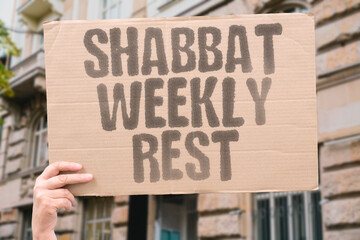 SHABBAT
WEEKLY
REST